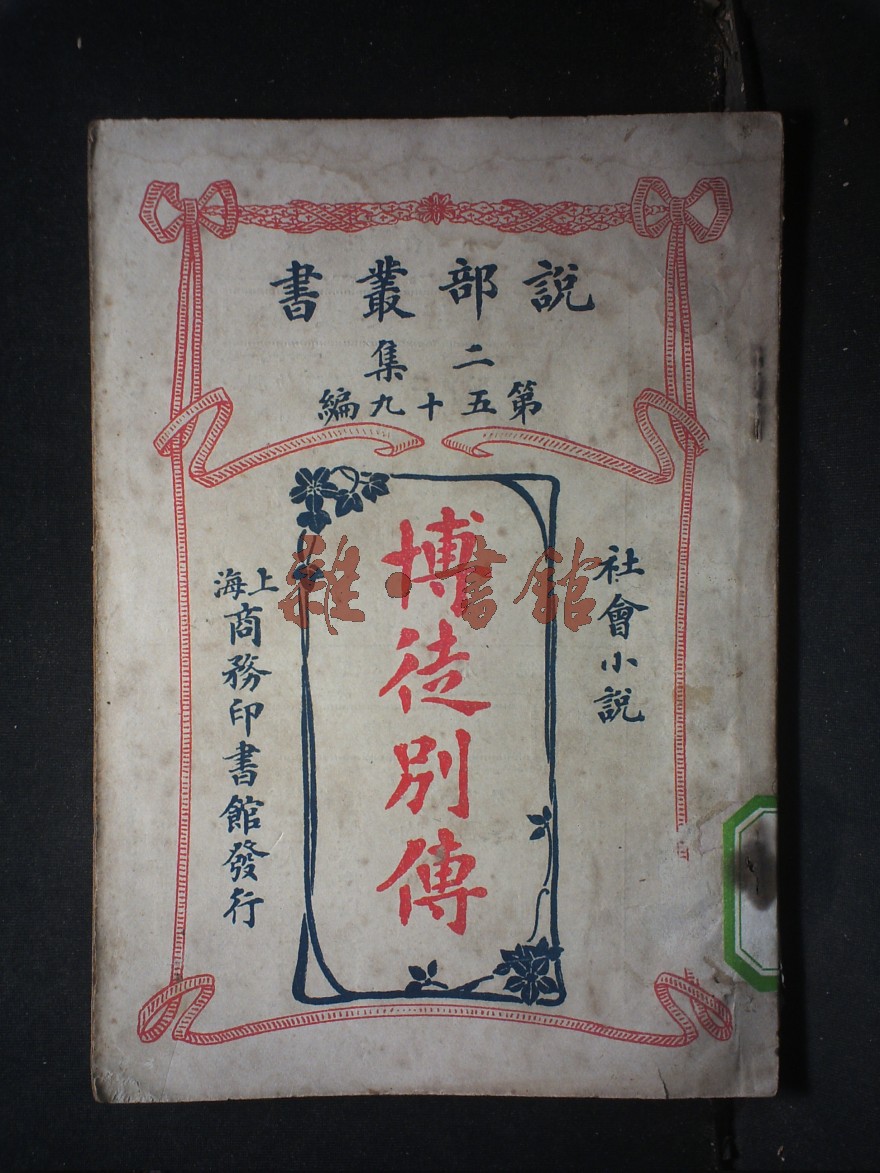 說部叢書
二集
第五十九編
社會小說
博徒別傳
上海
商務印書館發行
雜·書館